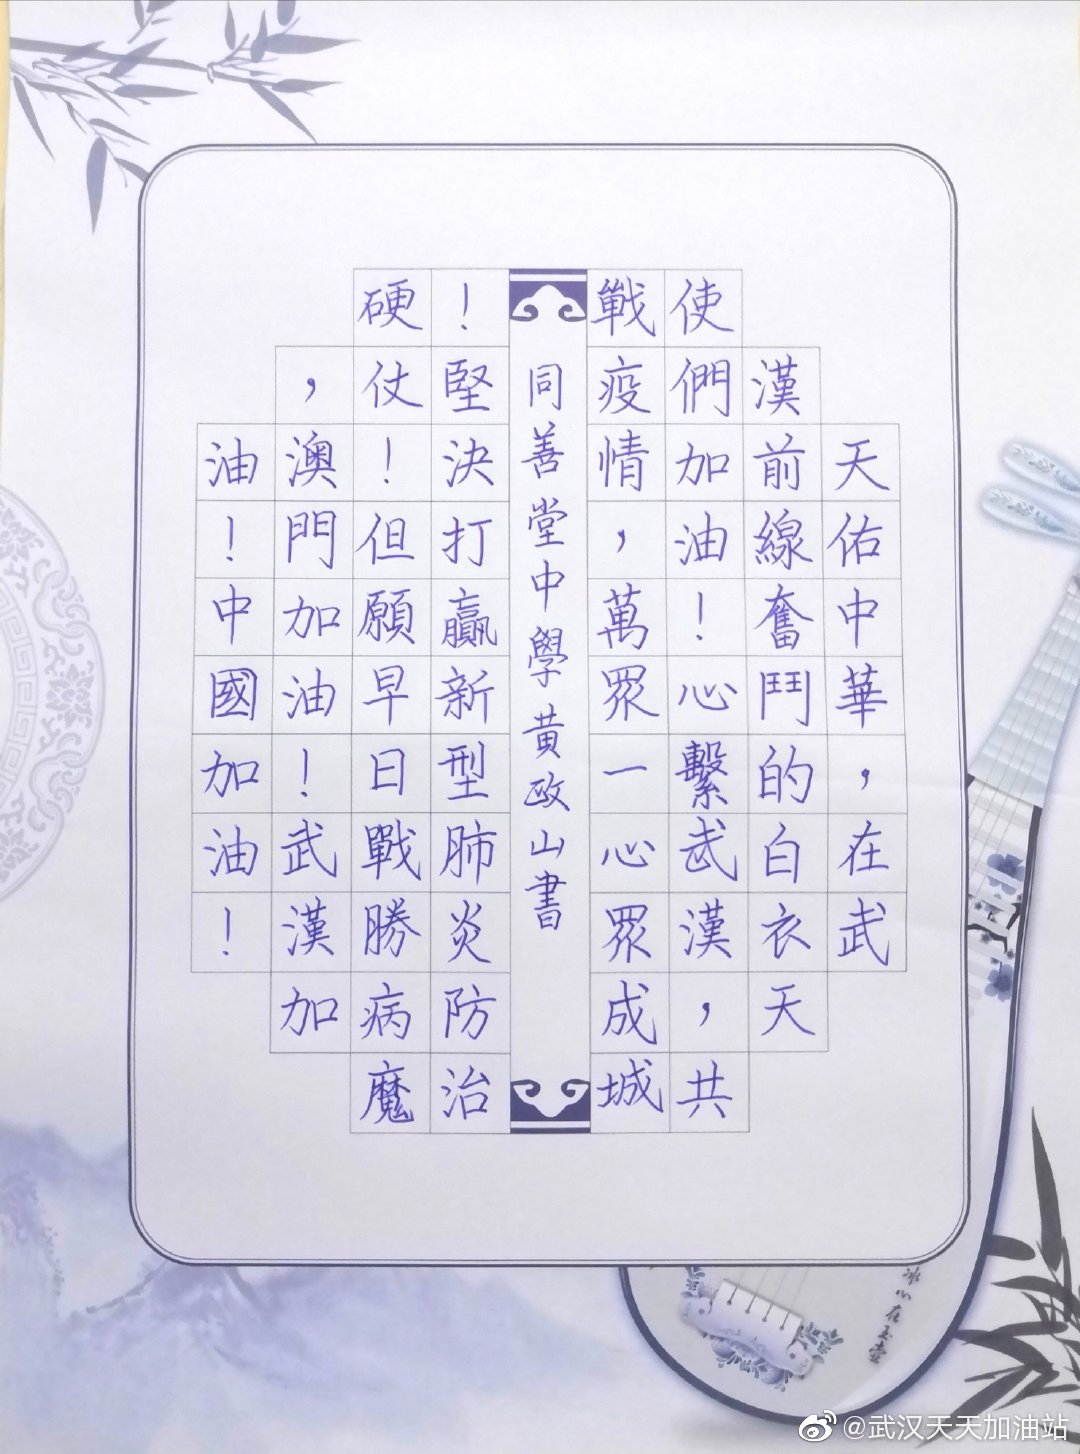 天佑中華，在武
漢前線奮鬥的白衣天
使們加油！心繫武漢，共
戰疫情，萬眾一心眾成城
同善堂中學黄政山書
！堅決打贏新型肺炎防治
硬仗！但願早日戰勝病魔
，澳門加油！武漢加
油！中國加油！
冰心在玉壺
@武汉天天加油站